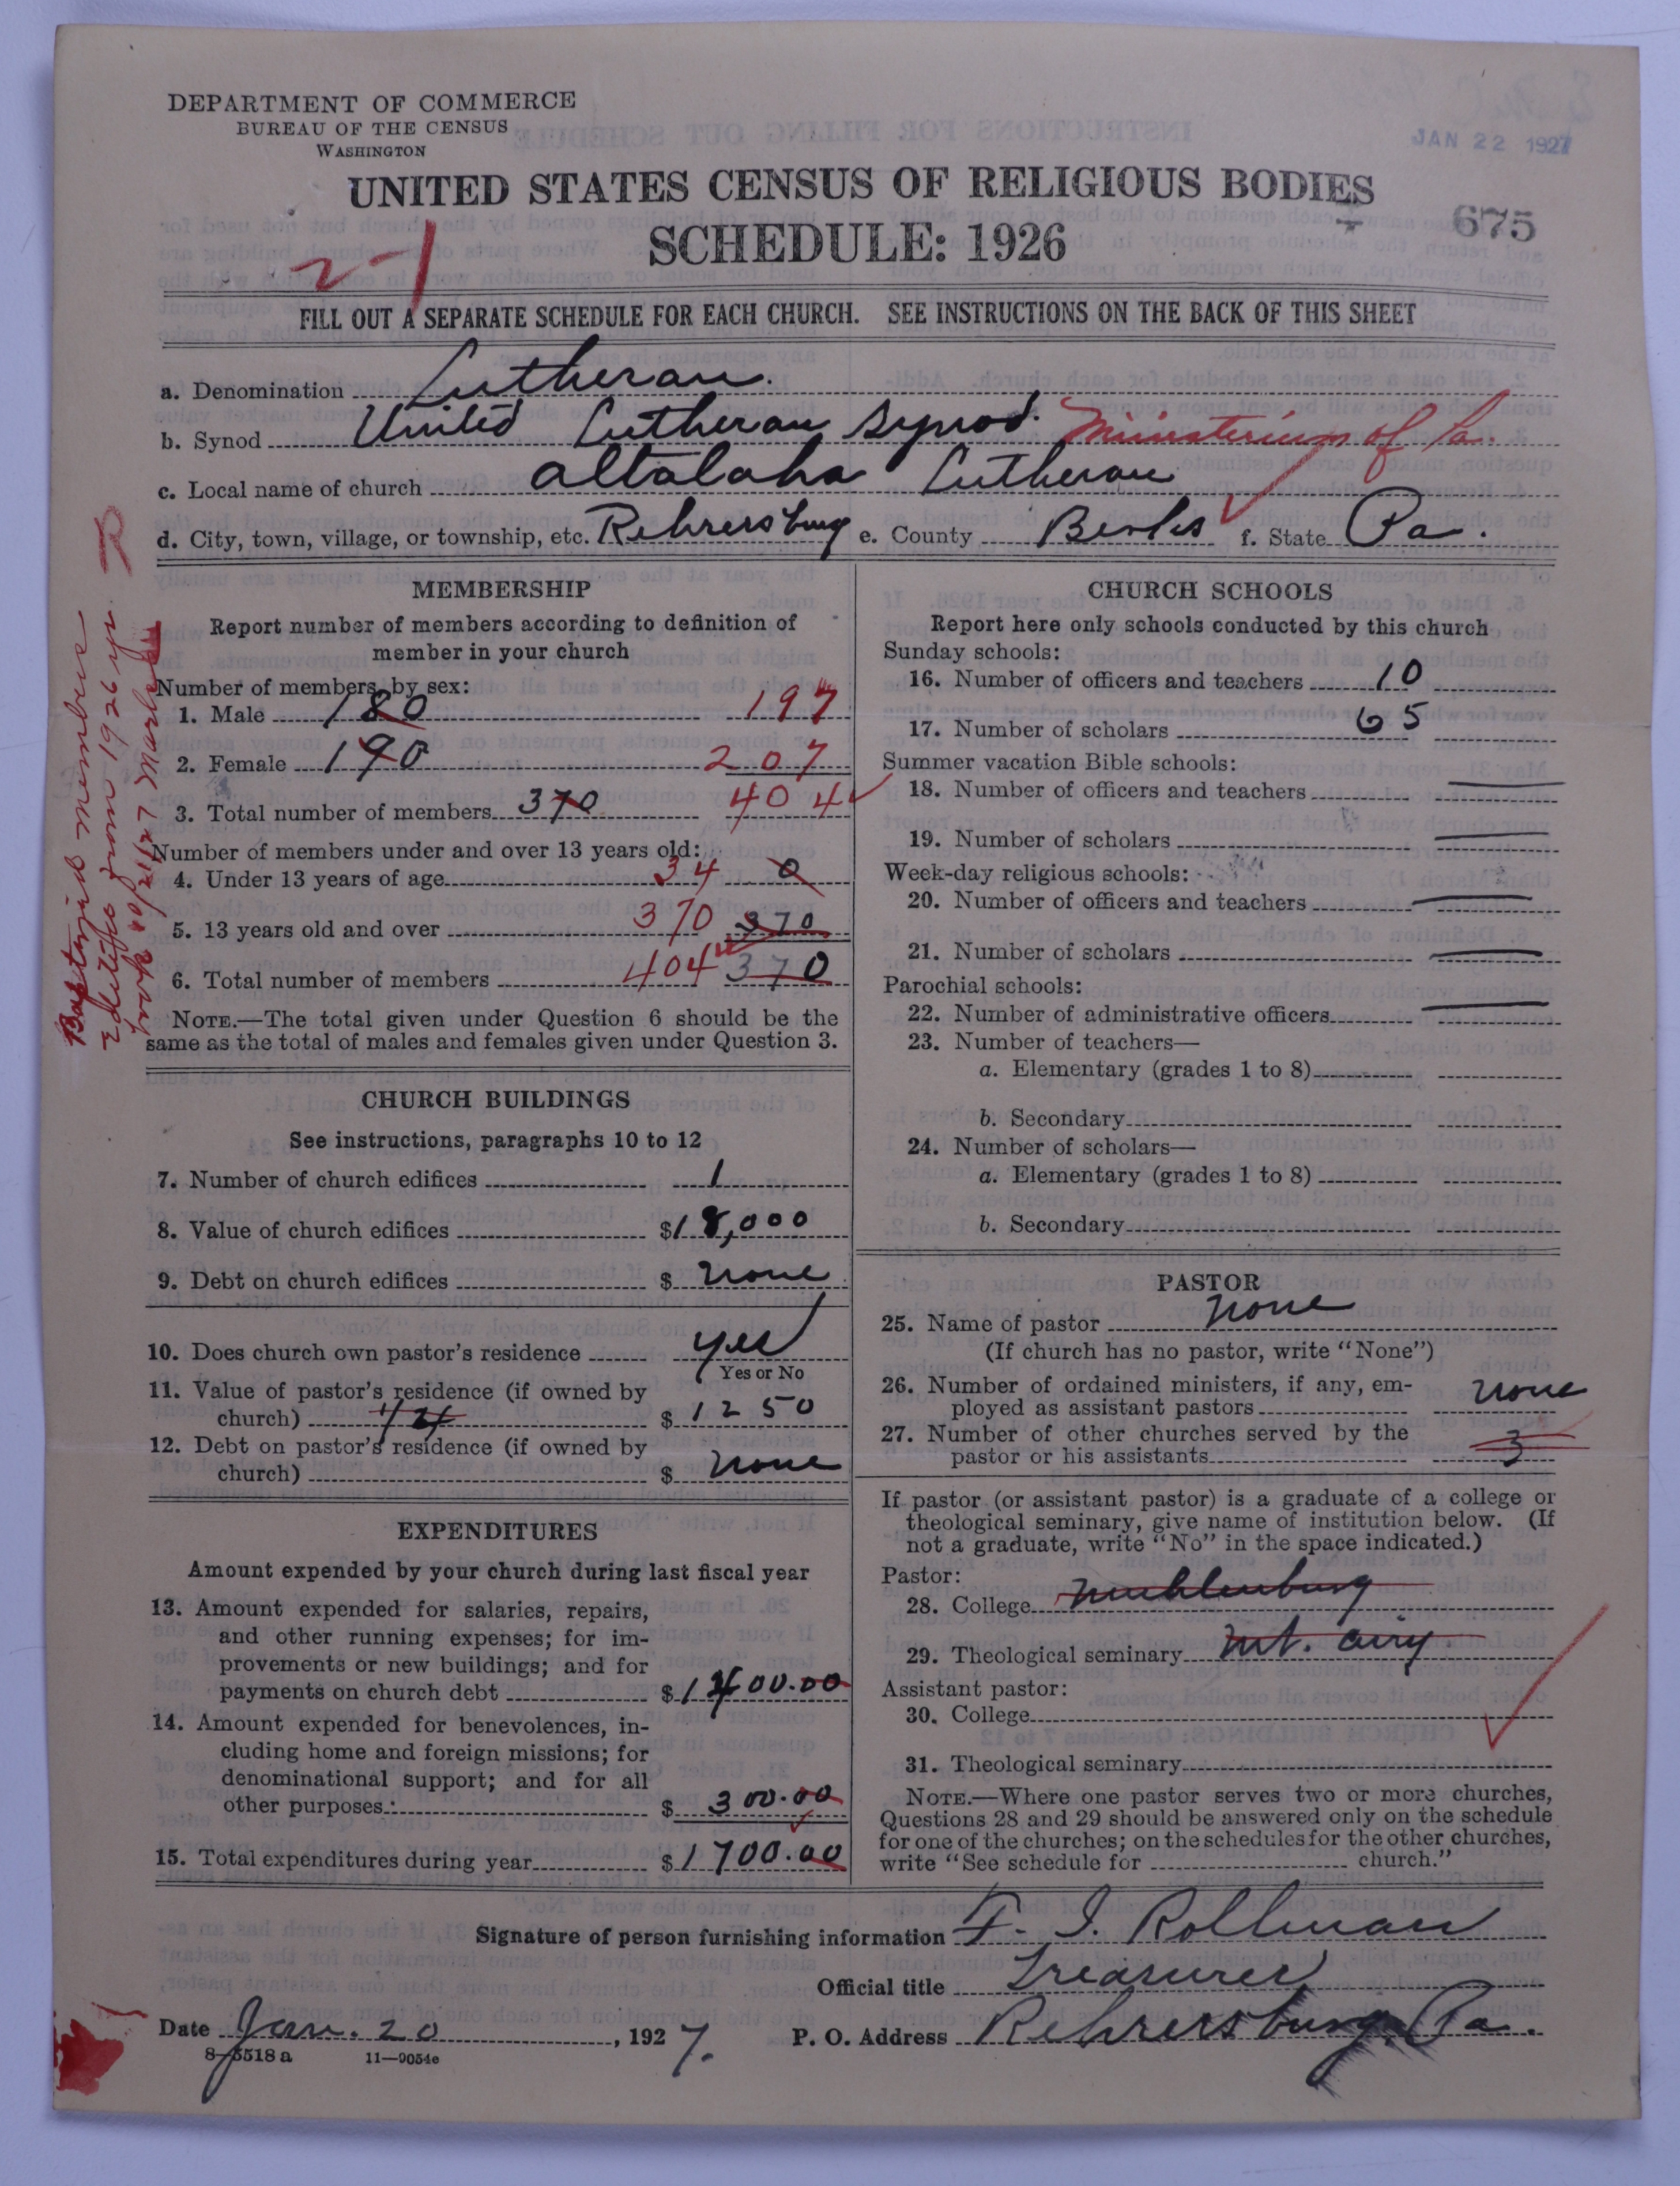 DEPARTMENT OF COMMERCE
BUREAU OF THE CENSUS
WASHINGTON
JAN 22 1927
UNITED STATES CENSUS OF RELIGIOUS BODIES
SCHEDULE: 1926
675
2-1
FILL OUT A SEPARATE SCHEDULE FOR EACH CHURCH. SEE INSTRUCTIONS ON THE BACK OF THIS SHEET
a. Denomination Lutheran.
b. Synod United Lutheran Synod. Ministerium of Pa.
c. Local name of church Altalaha Lutheran
d. City, town, village, or township, etc. Rehrersburg e. County Berks f. State Pa.
Baptized members
from 1926 yr
book 10/21/27
MEMBERSHIP
Report number of members according to definition of
member in your church
Number of members by sex:
1. Male 180 197
2. Female 190 207
3. Total number of members 370 404
Number of members under and over 13 years old:
4. Under 13 years of age 34 0
5. 13 years old and over 370 370
6. Total number of members 404 370
NOTE.—The total given under Question 6 should be the
same as the total of males and females given under Question 3.
CHURCH BUILDINGS
See instructions, paragraphs 10 to 12
7. Number of church edifices 1
8. Value of church edifices $18,000
9. Debt on church edifices $ None
10. Does church own pastor's residence Yes
Yes or No
11. Value of pastor's residence (if owned by
church) $ 1250
12. Debt on pastor's residence (if owned by
church) $ None
EXPENDITURES
Amount expended by your church during last fiscal year
13. Amount expended for salaries, repairs,
and other running expenses; for im-
provements or new buildings; and for
payments on church debt $1400.00
14. Amount expended for benevolences, in-
cluding home and foreign missions; for
denominational support; and for all
other purposes $ 300.00
15. Total expenditures during year $1700.00
CHURCH SCHOOLS
Report here only schools conducted by this church
Sunday schools:
16. Number of officers and teachers 10
17. Number of scholars 65
Summer vacation Bible schools:
18. Number of officers and teachers
19. Number of scholars
Week-day religious schools:
20. Number of officers and teachers
21. Number of scholars
Parochial schools:
22. Number of administrative officers
23. Number of teachers—
a. Elementary (grades 1 to 8)
b. Secondary
24. Number of scholars—
a. Elementary (grades 1 to 8)
b. Secondary
PASTOR
25. Name of pastor None
(If church has no pastor, write "None")
26. Number of ordained ministers, if any, em-
ployed as assistant pastors None
27. Number of other churches served by the
pastor or his assistants 3
If pastor (or assistant pastor) is a graduate of a college or
theological seminary, give name of institution below. (If
not a graduate, write "No" in the space indicated.)
Pastor:
28. College Muhlenburg
29. Theological seminary Mt. Airy.
Assistant pastor:
30. College
31. Theological seminary
NOTE.—Where one pastor serves two or more churches,
Questions 28 and 29 should be answered only on the schedule
for one of the churches; on the schedules for the other churches,
write "See schedule for church."
Signature of person furnishing information F. I. Rollman
Official title Treasurer
Date Jan. 20, 1927. P. O. Address Rehrersburg Pa.
8-5518 a 11-9054e